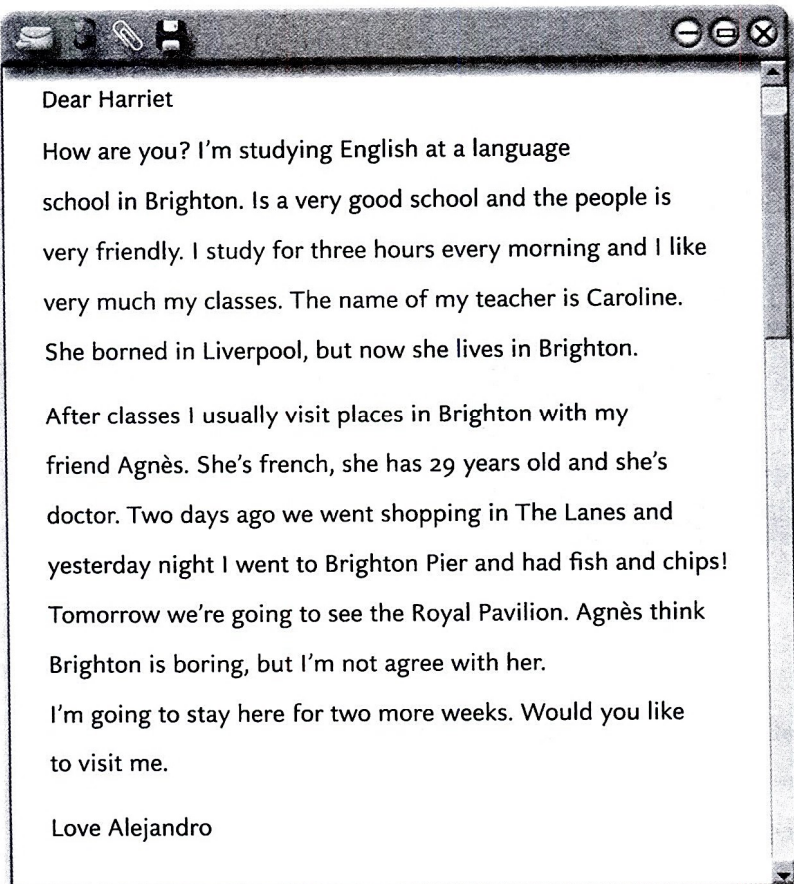 Dear Harriet
How are you? I'm studying English at a language
school in Brighton. Is a very good school and the people is
very friendly. I study for three hours every morning and I like
very much my classes. The name of my teacher is Caroline.
She borned in Liverpool, but now she lives in Brighton.
After classes I usually visit places in Brighton with my
friend Agnès. She's french, she has 29 years old and she's
doctor. Two days ago we went shopping in The Lanes and
yesterday night I went to Brighton Pier and had fish and chips!
Tomorrow we're going to see the Royal Pavilion. Agnès think
Brighton is boring, but I'm not agree with her.
I'm going to stay here for two more weeks. Would you like
to visit me.
Love Alejandro